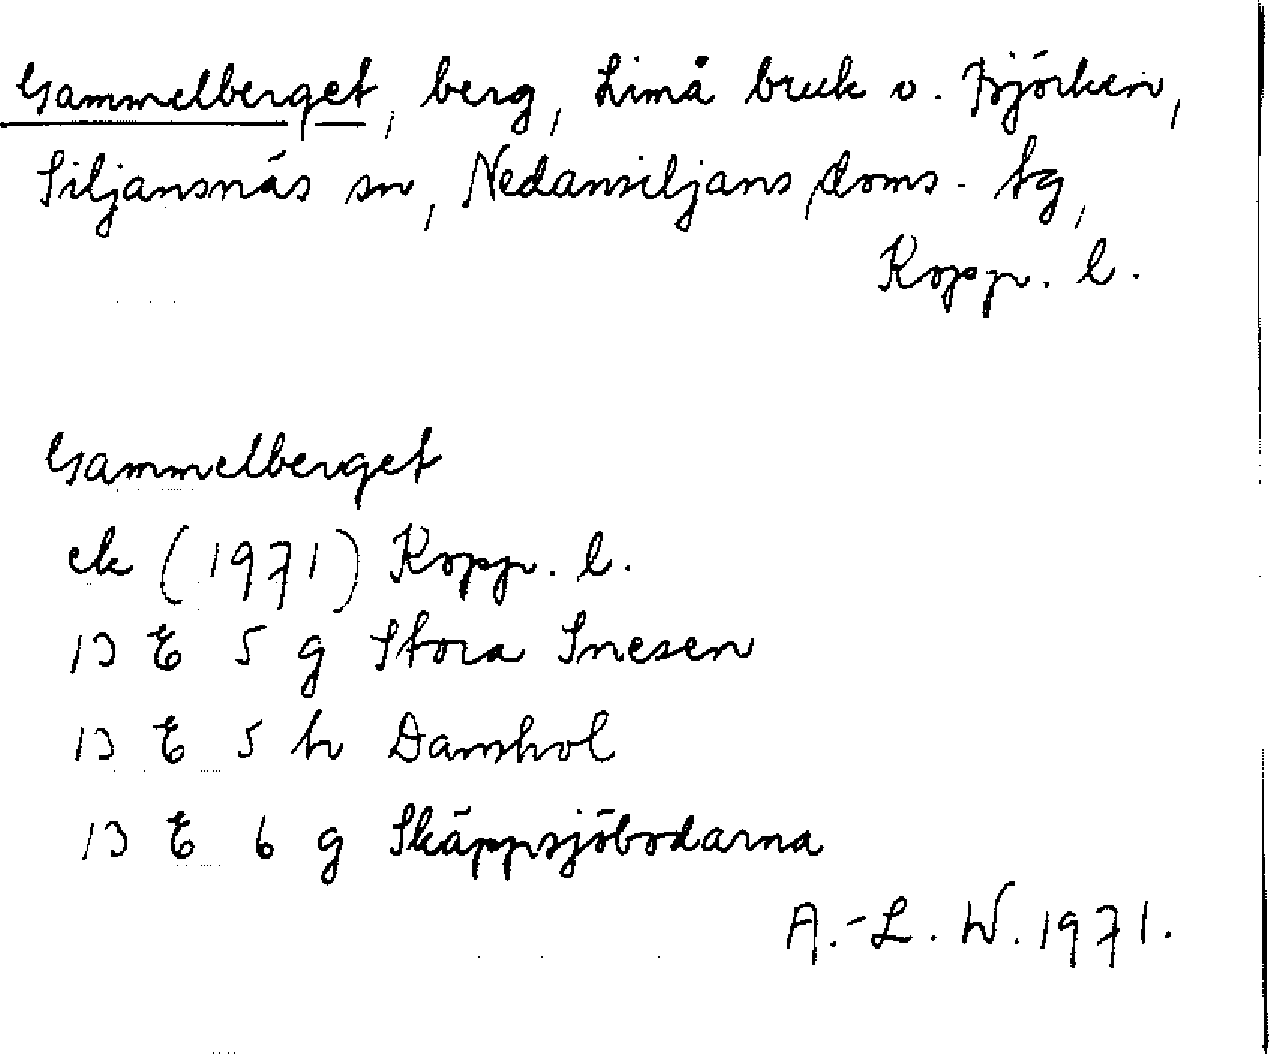 Gammelberget, berg, Limå bruk o. Björken,
Siljansnäs sn, Nedansiljans doms. tg,
Kopp. l.
Gammelberget
ek (1971) Kopp. l.
13 E 5 g Stora Snesen
13 E 5 h Damshol
13 E 6 g Skäppsjöbodarna
A.-L. W. 1971.